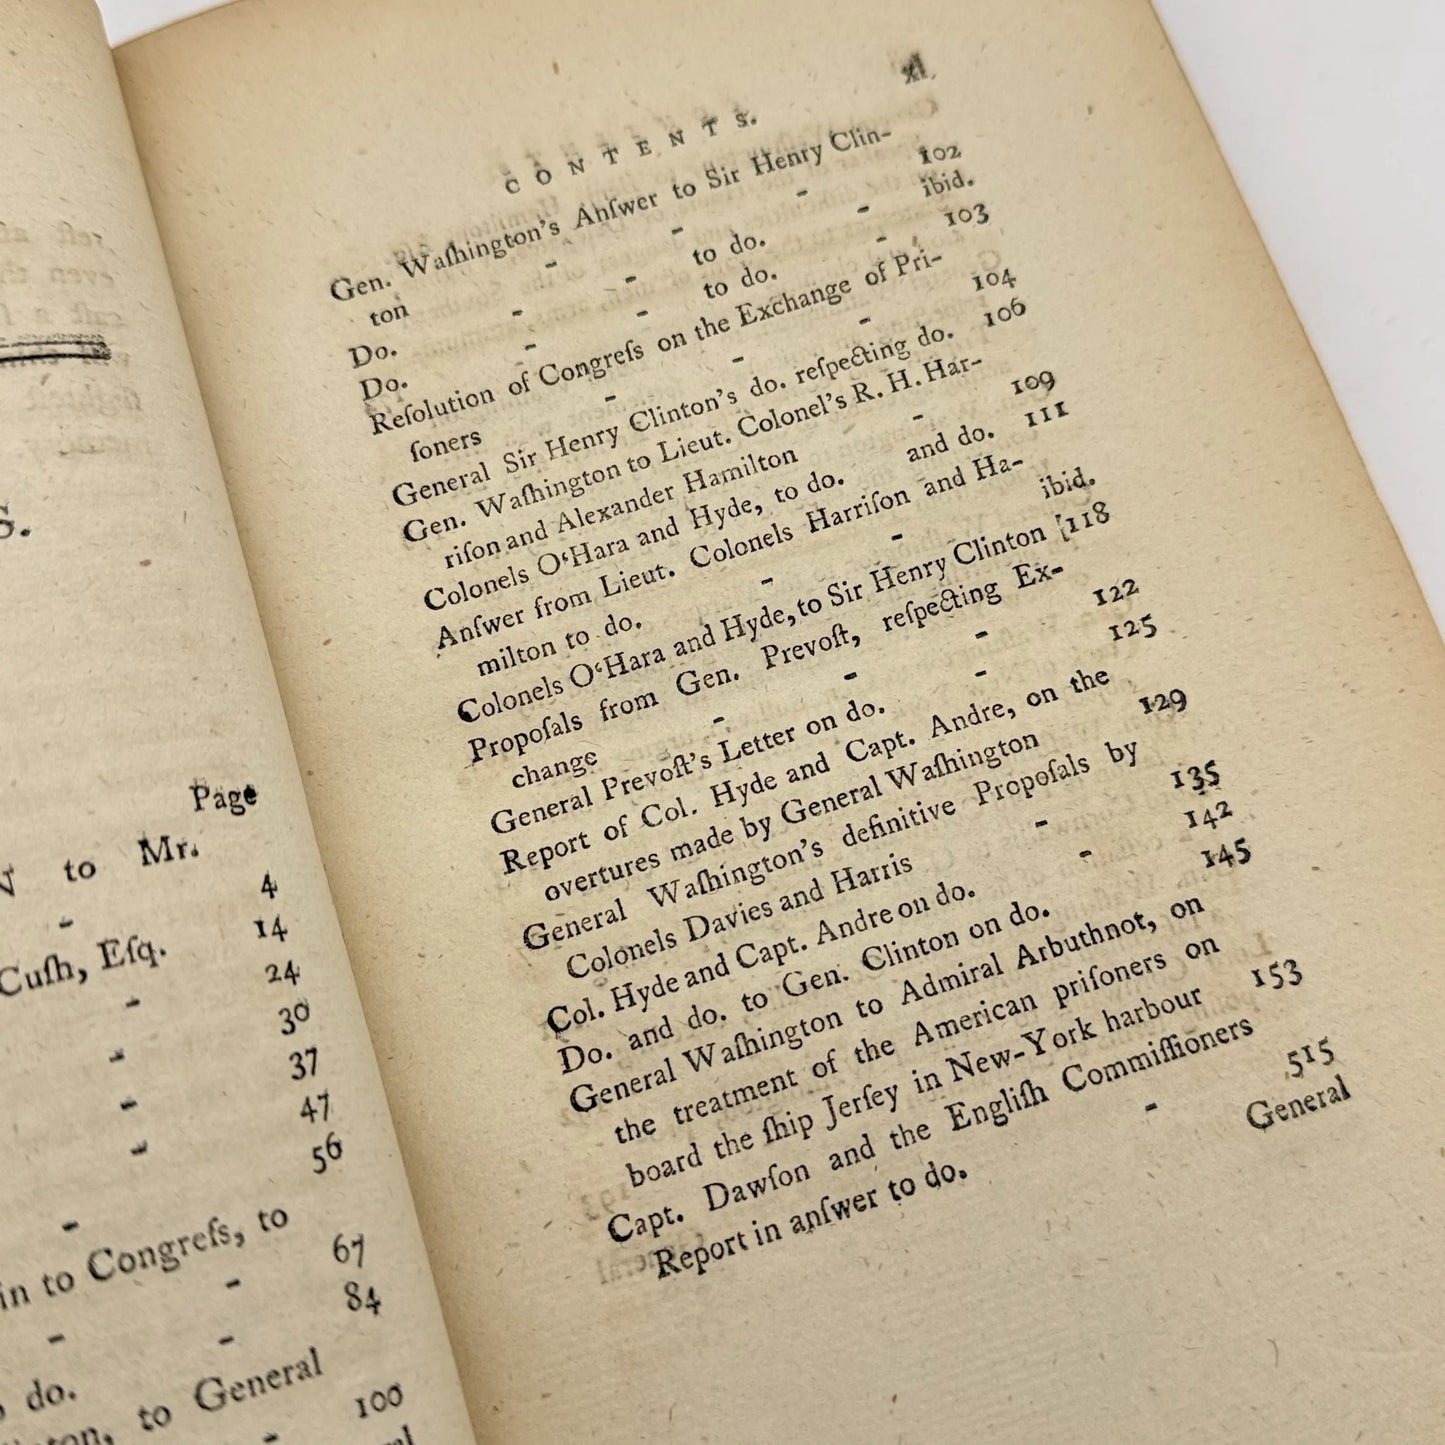 S.
Page
to Mr.
- 4
Cuſh, Eſq. 14
- 24
- 30
- 37
- 47
- 56
in to Congreſs, to
- - 67
- - 84
do.
to General
- 100
CONTENTS. xi
Gen. Waſhington's Anſwer to Sir Henry Clin-
ton - - - 102
Do. - - to do. - ibid.
Do. - - to do. - 103
Reſolution of Congreſs on the Exchange of Pri-
ſoners - - - 104
General Sir Henry Clinton's do. reſpecting do. 106
Gen. Waſhington to Lieut. Colonel's R. H. Har-
riſon and Alexander Hamilton - 109
Colonels O'Hara and Hyde, to do. and do. 111
Anſwer from Lieut. Colonels Harriſon and Ha-
milton to do. - - ibid.
Colonels O'Hara and Hyde, to Sir Henry Clinton [118
Propoſals from Gen. Prevoſt, reſpecting Ex-
change - - - 122
General Prevoſt's Letter on do. - 125
Report of Col. Hyde and Capt. Andre, on the
overtures made by General Waſhington 129
General Waſhington's definitive Propoſals by
Colonels Davies and Harris - 135
Col. Hyde and Capt. Andre on do. - 142
Do. and do. to Gen. Clinton on do. 145
General Waſhington to Admiral Arbuthnot, on
the treatment of the American priſoners on
board the ſhip Jerſey in New-York harbour 153
Capt. Dawſon and the Engliſh Commiſſioners
Report in anſwer to do. - 515
General